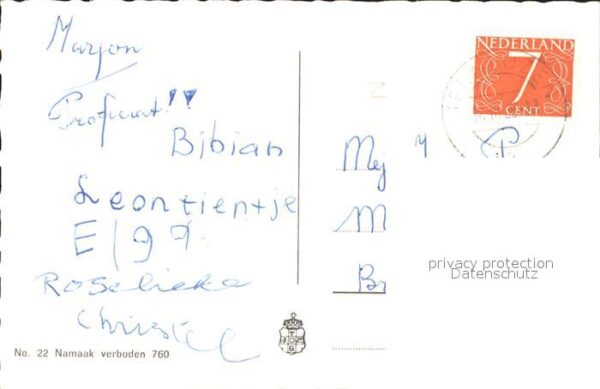 Marjon
Proficiat!!
Bibian
Leontientje
Roselieke
No. 22 Namaak verboden 760
NEDERLAND
7
CENT
Mej
M
Br
privacy protection
Datenschutz